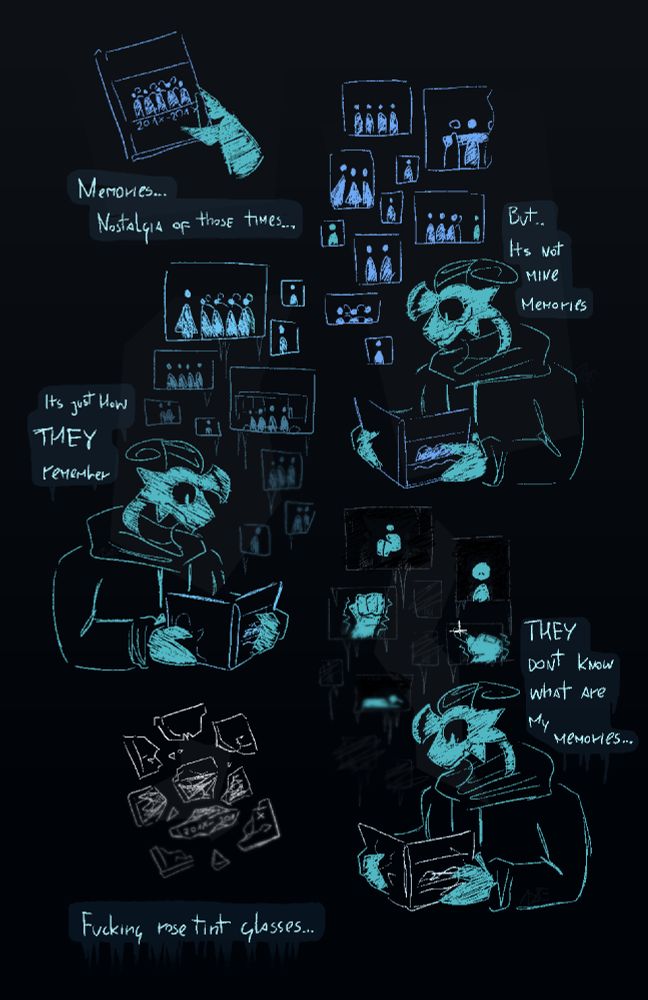 201X-201X
Memories...
Nostalgia of those times...
But..
Its not
mine
memories
Its just how
THEY
remember
THEY
dont know
what are
my
memories...
201X-201
X
Fucking rose tint glasses...